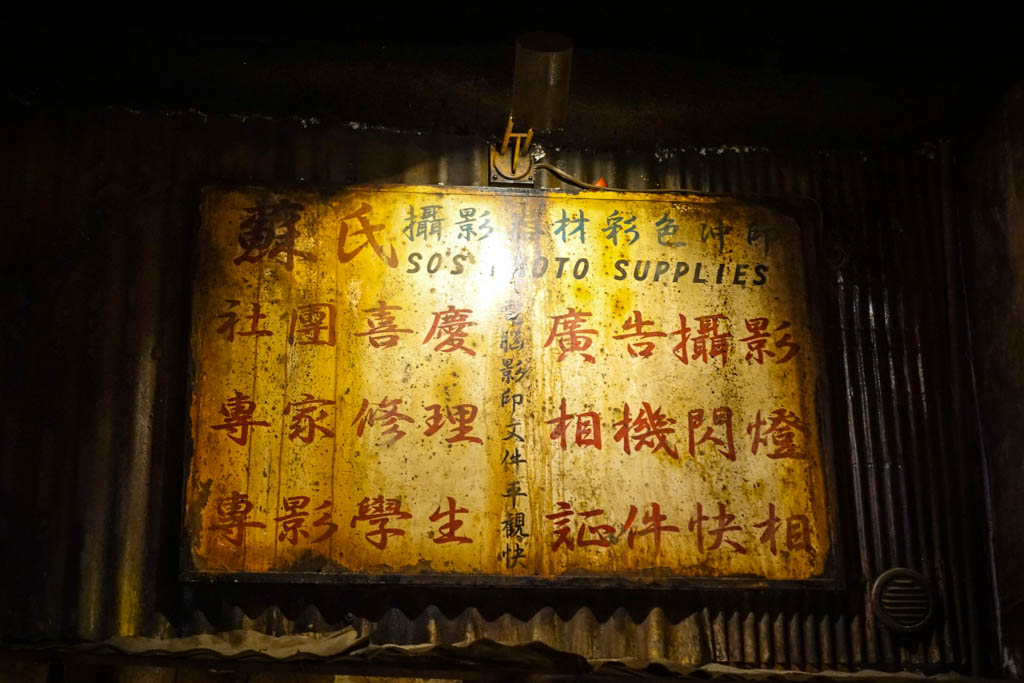 蘇氏 攝影 材彩色冲
SO'S PHOTO SUPPLIES
社團喜慶 廣告攝影
專家修理 相機閃燈
專影學生 証件快相
影印文件平覌快